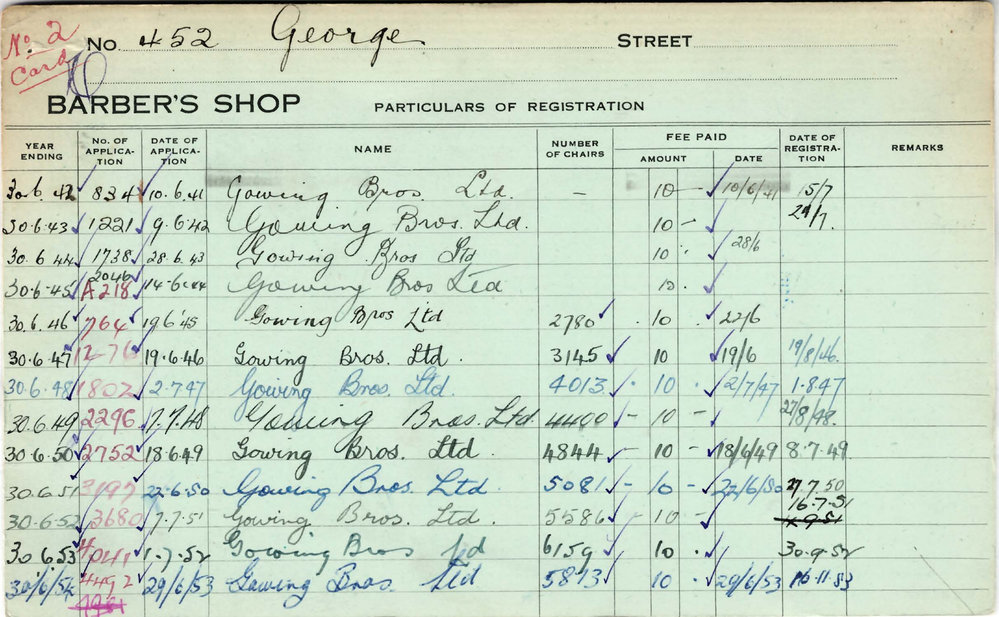 No. 2 Card
No 452 George STREET
BARBER'S SHOP PARTICULARS OF REGISTRATION
YEAR ENDING NO. OF APPLICATION DATE OF APPLICATION NAME NUMBER OF CHAIRS FEE PAID AMOUNT DATE DATE OF REGISTRATION REMARKS
30.6.42 834 10.6.41 Gowing Bros. Ltd. - 10 - 10/6/41 15/7
30.6.43 1221 9.6.42 Gowing Bros. Ltd. 10 - 29/7.
30.6.44 1738 28.6.43 Gowing Bros Ltd 10 . 28/6
30.6.45 2046 A218 14-6-44 Gowing Bros Ltd 10 .
30.6.46 764 19.6.45 Gowing Bros Ltd 2780 10 . 22/6
30.6.47 1276 19.6.46 Gowing Bros. Ltd. 3145 10 19/6 19/8/46.
30.6.48 1802 2.7.47 Gowing Bros. Ltd. 4013 . 10 . 2/7/47 1.8.47
30.6.49 2296 7.7.48 Gowing Bros. Ltd. 4400 - 10 - 27/8/48.
30.6.50 2752 18.6.49 Gowing Bros. Ltd 4844 - 10 - 18/6/49 8.7.49
30.6.51 3197 22.6.50 Gowing Bros. Ltd 5081 - 10 - 22/6/50 27.7.50
30.6.52 3680 7.7.51 Gowing Bros. Ltd. 5586 - 10 - 16.7.51
4.9.51
30.6.53 4041 1.7.52 Gowing Bros Ltd 6159 10 . 30.9.52
30/6/54 4492 29/6/53 Gowing Bros. Ltd 5873 10 . 29/6/53 16.11.53